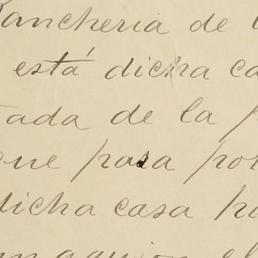 Rancheria de
está dicha ca
tada de la
que pasa po
dicha casa h